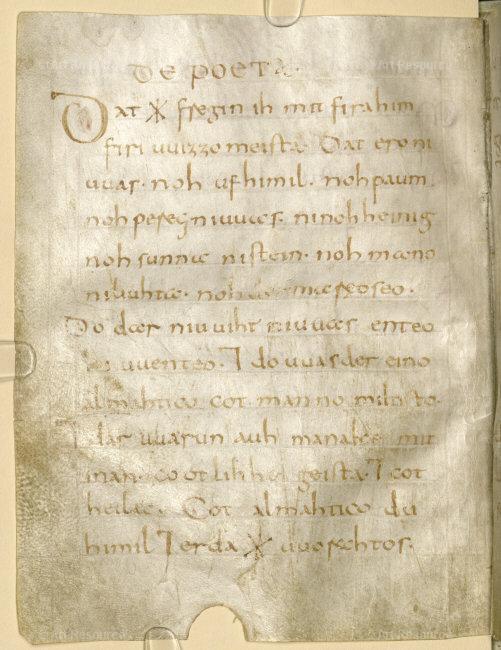 DE POETA.
Dat ᚼ fregin ih mit firahim
firi uuizzo meista. Dat ero ni
uuas. noh ufhimil. noh paum
noh pereg ni uuas. ninohheinig
noh sunna nistein. noh mano
niliuhta. noh der mareoseo.
Do dar niuuiht niuuas enteo
ni uuenteo. ⁊ do uuas der eino
almahtico cot manno miltisto.
⁊ dar uuarun auh manake mit
inan. cootlihhe geista. ⁊ cot
heilac. Cot almahtico du
himil ⁊ erda ᚼ uuorahtos.